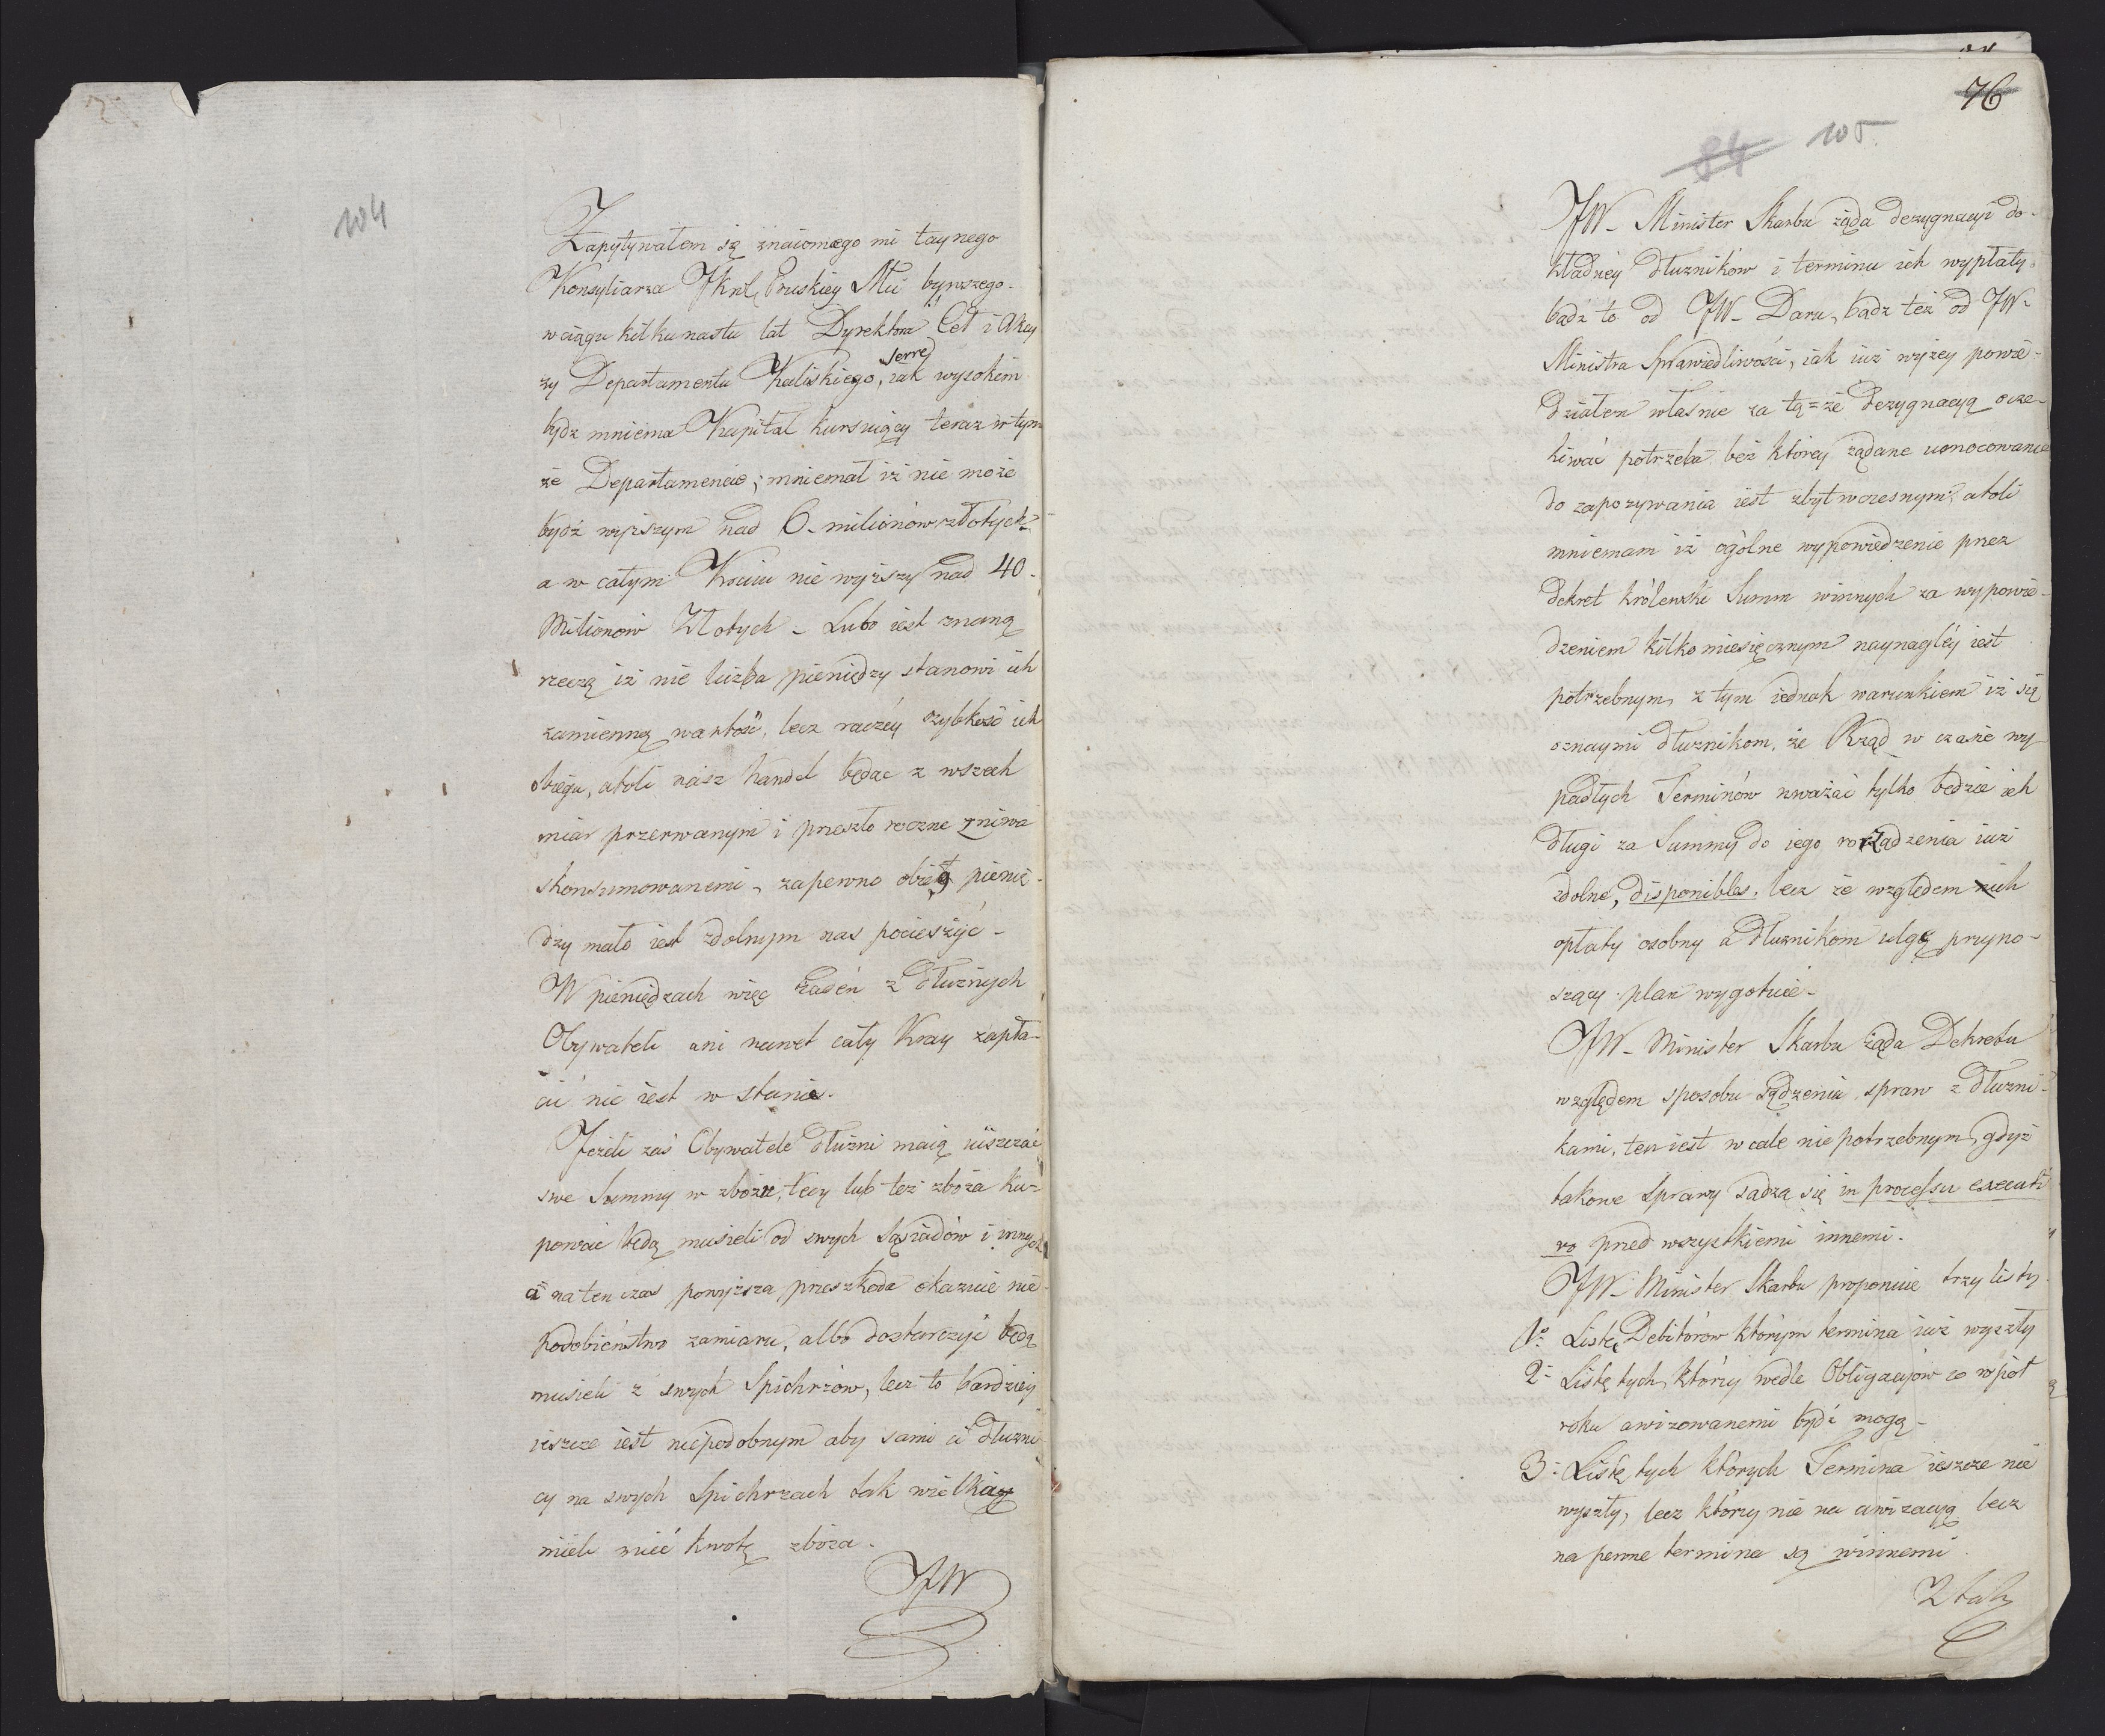 104
Zapytywałem się znaiomego mi taynego
Konsyliarza JKrl. Pruskiey Mci bywszego
w ciągu kilkunastu lat Dyrektora Ceł i Akcy
zy Departamentu Kaliskiego, Serre, iak wysokim
bydz mniema Kapitał kursuiący teraz w tym
że Departamencie; mniemał iż nie może
bydź wyższym nad 6. milionów złotych
a w całym Kraiu nie wyższy nad 40.
Milionow Złotych – Lubo iest znaną
rzeczą iż nie liczba pieniędzy stanowi ich
zamienną wartość, lecz raczéy szybkość ich
obiegu, atoli nasz handel będąc z wszech
miar przerwanym i przeszło roczne żniwa
skonsumowanemi, zapewno obieg pienię-
dzy mało iest zdolnym nas pocieszyć –
W pieniędzach więc żaden z dłużnych
Obywateli ani nawet cały Kray zapła-
cić nie iest w stanie.
Jeżeli zaś Obywatele dłużni maią uiszczać
swe Summy w zbożu, tedy lub też zboża ku-
pować będą musieli od swych Sąsiadów i innych
a na ten czas powyższa przeszkoda okazuie nie
podobieństwo zamiaru, albo dostarczyć będą
musieli z swych Spichrzów, lecz to bardziey
ieszcze iest niepodobnym aby sami ci dłużni
cy na swych Spichrzach tak wielką
mieli mieć kwotę zboża.
JW
76
84 105
JW– Minister Skarbu żąda dezygnacyi do-
kładney dłużników i terminu ich wypłaty
bądź to od JW– Daru, bądz też od JW–
Ministra Sprawiedliwości, iak iuż wyżey powie-
działem właśnie za tą=że dezygnacyą ocze-
kiwać potrzeba bez którey żądane umocowanie
do zapozywania iest zbyt wczesnym, atoli
mniemam iż ogólne wypowiedzenie przez
dekret królewski Summ winnych za wypowie-
dzeniem kilko miesięcznym naynagléy iest
potrzebnym, z tym iednak warunkiem iż się
oznaymi dłużnikom, że Rząd w czasie wy-
padłych Terminów uważać tylko będzie ich
długi za Summy do iego rozrządzenia iuż
zdolne, disponibles. lecz że względem ich
opłaty osobny a dłużnikom ulgę przyno-
szący plan wygotuie –
JW– Minister Skarbu żąda Dekretu
względem sposobu sądzenia spraw z dłużni-
kami, ten iest wcale niepotrzebnym, gdyż
takowe Sprawy sądzą się in processu executi
vo przed wszystkiemi innemi.
JW– Minister Skarbu proponuie trzy listy
1o Listę Debitorów którym termina iuż wyszły
2– Listę tych, którzy wedle Obligacyów co w pół
roku awizowanemi bydź mogą –
3– Listę tych których Termina ieszcze nie
wyszły, lecz którzy nie na awizacyą lecz
na pewne termina są winnemi.
Z tak